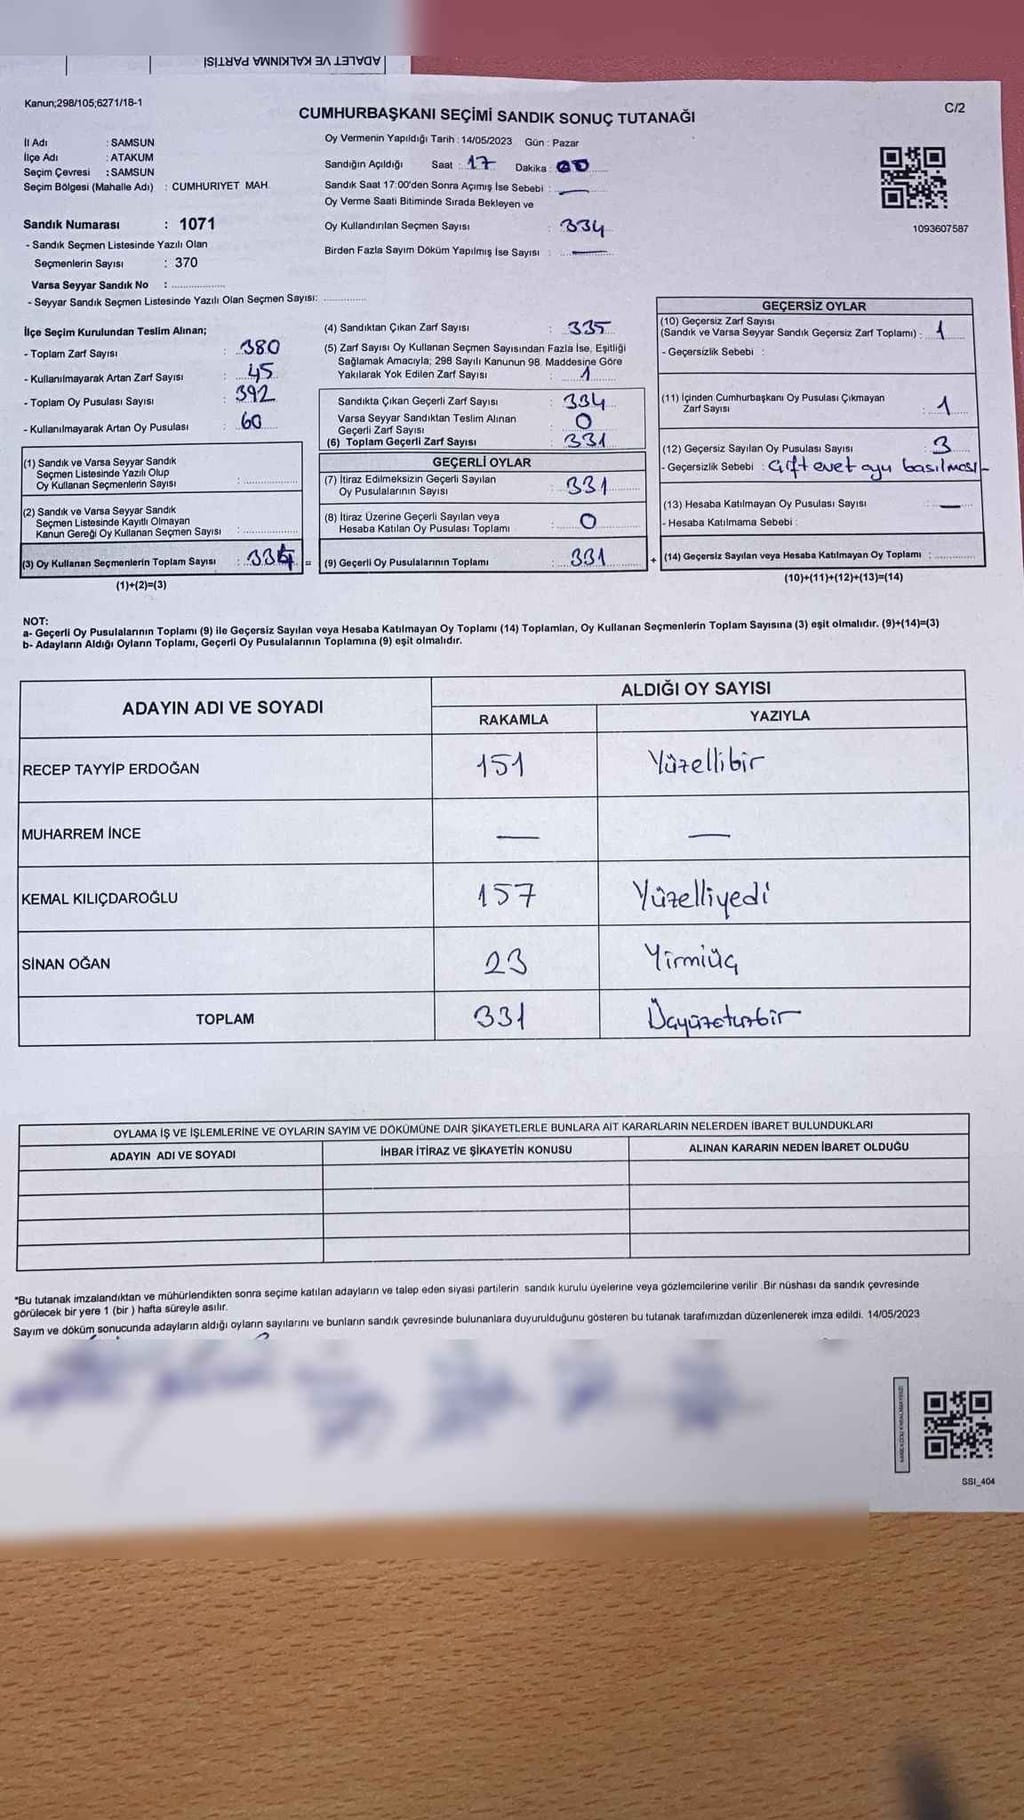 ADALET VE KALKINMA PARTİSİ
Kanun;298/105;6271/18-1
C/2
CUMHURBAŞKANI SEÇİMİ SANDIK SONUÇ TUTANAĞI
İl Adı : SAMSUN
İlçe Adı : ATAKUM
Seçim Çevresi : SAMSUN
Seçim Bölgesi (Mahalle Adı) : CUMHURIYET MAH.
Sandık Numarası : 1071
- Sandık Seçmen Listesinde Yazılı Olan
Seçmenlerin Sayısı : 370
Varsa Seyyar Sandık No :
- Seyyar Sandık Seçmen Listesinde Yazılı Olan Seçmen Sayısı:
Oy Vermenin Yapıldığı Tarih : 14/05/2023 Gün : Pazar
Sandığın Açıldığı Saat : 17 Dakika : 00
Sandık Saat 17:00'den Sonra Açımış İse Sebebi : —
Oy Verme Saati Bitiminde Sırada Bekleyen ve
Oy Kullandırılan Seçmen Sayısı : 334
Birden Fazla Sayım Döküm Yapılmış İse Sayısı : —
1093607587
İlçe Seçim Kurulundan Teslim Alınan;
- Toplam Zarf Sayısı : 380
- Kullanılmayarak Artan Zarf Sayısı : 45
- Toplam Oy Pusulası Sayısı : 392
- Kullanılmayarak Artan Oy Pusulası : 60
(1) Sandık ve Varsa Seyyar Sandık
Seçmen Listesinde Yazılı Olup
Oy Kullanan Seçmenlerin Sayısı :
(2) Sandık ve Varsa Seyyar Sandık
Seçmen Listesinde Kayıtlı Olmayan
Kanun Gereği Oy Kullanan Seçmen Sayısı :
(3) Oy Kullanan Seçmenlerin Toplam Sayısı : 334 =
(1)+(2)=(3)
(4) Sandıktan Çıkan Zarf Sayısı : 335
(5) Zarf Sayısı Oy Kullanan Seçmen Sayısından Fazla İse, Eşitliği
Sağlamak Amacıyla; 298 Sayılı Kanunun 98. Maddesine Göre
Yakılarak Yok Edilen Zarf Sayısı : 1
Sandıkta Çıkan Geçerli Zarf Sayısı : 334
Varsa Seyyar Sandıktan Teslim Alınan
Geçerli Zarf Sayısı : 0
(6) Toplam Geçerli Zarf Sayısı : 331
GEÇERLİ OYLAR
(7) İtiraz Edilmeksizin Geçerli Sayılan
Oy Pusulalarının Sayısı : 331
(8) İtiraz Üzerine Geçerli Sayılan veya
Hesaba Katılan Oy Pusulası Toplamı : 0
(9) Geçerli Oy Pusulalarının Toplamı : 331 +
GEÇERSİZ OYLAR
(10) Geçersiz Zarf Sayısı
(Sandık ve Varsa Seyyar Sandık Geçersiz Zarf Toplamı) : 1
- Geçersizlik Sebebi :
(11) İçinden Cumhurbaşkanı Oy Pusulası Çıkmayan
Zarf Sayısı : 1
(12) Geçersiz Sayılan Oy Pusulası Sayısı : 3
- Geçersizlik Sebebi : Çift evet oyu basılması
(13) Hesaba Katılmayan Oy Pusulası Sayısı : —
- Hesaba Katılmama Sebebi :
(14) Geçersiz Sayılan veya Hesaba Katılmayan Oy Toplamı :
(10)+(11)+(12)+(13)=(14)
NOT:
a- Geçerli Oy Pusulalarının Toplamı (9) ile Geçersiz Sayılan veya Hesaba Katılmayan Oy Toplamı (14) Toplamları, Oy Kullanan Seçmenlerin Toplam Sayısına (3) eşit olmalıdır. (9)+(14)=(3)
b- Adayların Aldığı Oyların Toplamı, Geçerli Oy Pusulalarının Toplamına (9) eşit olmalıdır.
ADAYIN ADI VE SOYADI
ALDIĞI OY SAYISI
RAKAMLA YAZIYLA
RECEP TAYYİP ERDOĞAN 151 Yüzellibir
MUHARREM İNCE — —
KEMAL KILIÇDAROĞLU 157 Yüzelliyedi
SİNAN OĞAN 23 Yirmiüç
TOPLAM 331 Üçyüzotuzbir
OYLAMA İŞ VE İŞLEMLERİNE VE OYLARIN SAYIM VE DÖKÜMÜNE DAİR ŞİKAYETLERLE BUNLARA AİT KARARLARIN NELERDEN İBARET BULUNDUKLARI
ADAYIN ADI VE SOYADI İHBAR İTİRAZ VE ŞİKAYETİN KONUSU ALINAN KARARIN NEDEN İBARET OLDUĞU
*Bu tutanak imzalandıktan ve mühürlendikten sonra seçime katılan adayların ve talep eden siyasi partilerin sandık kurulu üyelerine veya gözlemcilerine verilir .Bir nüshası da sandık çevresinde
görülecek bir yere 1 (bir ) hafta süreyle asılır.
Sayım ve döküm sonucunda adayların aldığı oyların sayılarını ve bunların sandık çevresinde bulunanlara duyurulduğunu gösteren bu tutanak tarafımızdan düzenlenerek imza edildi. 14/05/2023
SSI_404